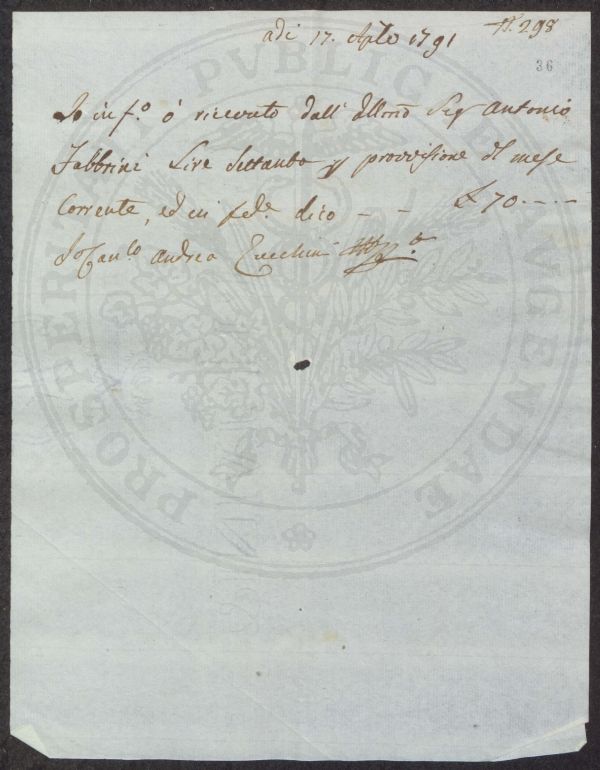 adi 17. Aple 1791
N. 298
36
Io inf.º ó riceuto dall' Illmo Sigr Antonio
Fabbrini Lire Settanta p provvisione dl mese
Corrente, ed in fede. dico - - £ 70 - - - -
Io Can.co Andrea Zucchini
PROSPERITATI PUBLICAE AUGENDAE